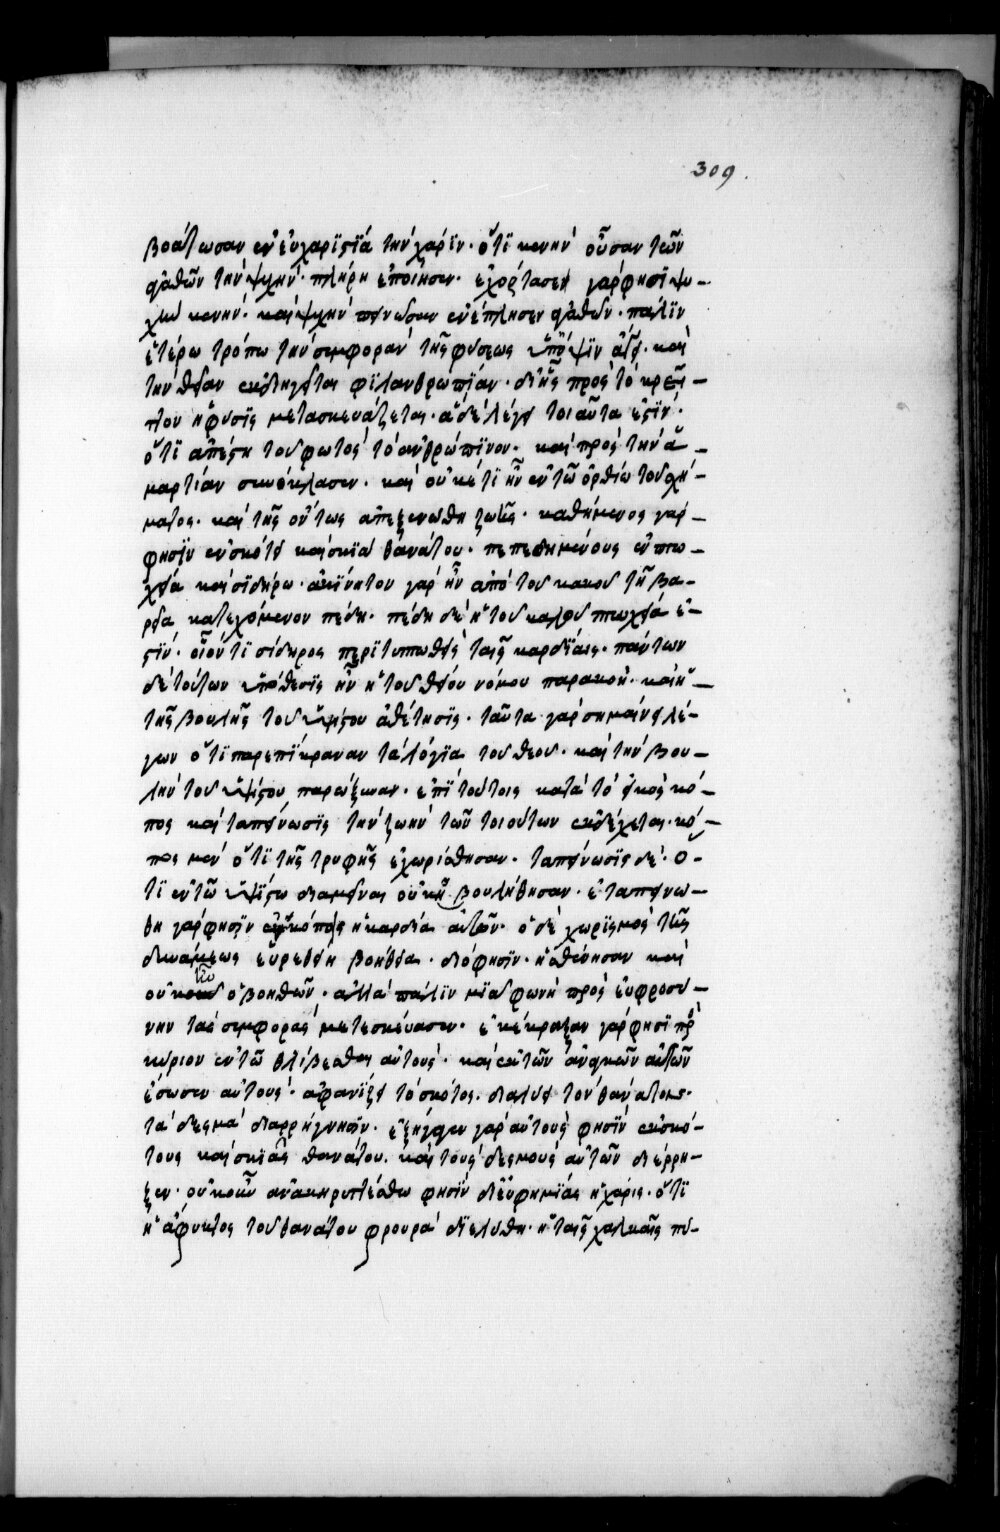 309.
βοάτωσαν ἐν εὐχαριστία τὴν χάριν· ὅτι κενὴν οὖσαν τῶν
ἀγαθῶν τὴν ψυχὴν· πλήρη ἐποίησεν· ἐχόρτασεν γάρ φησι ψυ-
χὴν κενὴν· καὶ ψυχὴν πεινῶσαν ἐνέπλησεν ἀγαθῶν· πάλιν
ἑτέρω τρόπω τὴν συμφορὰν τῆς φύσεως ὑπ' ὄψιν ἄγει· καὶ
τὴν θείαν ἐκδιηγεῖται φιλανθρωπίαν· δι' ἧς πρὸς τὸ κρεῖ-
ττον ἡ φύσις μετασκευάζεται· ἃ δὲ λέγει τοιαῦτα ἐστίν·
ὅτι ἀπέστη τοῦ φωτὸς τὸ ἀνθρώπινον· καὶ πρὸς τὴν ἁ-
μαρτίαν συνόκλασεν· καὶ οὐκέτι ἦν ἐν τῶ ὀρθίω τοῦ σχή-
ματος· καὶ τῆς ὄντως ἀπεξενώθη ζωῆς· καθήμενος γάρ
φησιν ἐν σκότει καὶ σκιᾶ θανάτου· πεπεδημένους ἐν πτω-
χεία καὶ σιδήρω· ἀκίνητον γὰρ ἦν ἀπὸ τοῦ κακοῦ τῆ βα-
ρεία κατεχόμενον πέδη· πέδη δὲ ἡ τοῦ καλοῦ πτωχεία ἐ-
στίν· οἷόν τι σίδηρος περιτυπωθεὶς ταῖς καρδίαις· πάντων
δὲ τούτων ὑπόθεσις ἦν ἡ τοῦ θείου νόμου παρακοή· καὶ ἡ
τῆς βουλῆς τοῦ ὑψίστου ἀθέτησις· ταῦτα γὰρ σημαίνει λέ-
γων ὅτι παρεπίκραναν τὰ λόγια τοῦ θεοῦ· καὶ τὴν βου-
λὴν τοῦ ὑψίστου παρώξυναν· ἐπὶ τούτοις κατὰ τὸ εἰκὸς κό-
πος καὶ ταπείνωσις τὴν ζωὴν τῶν τοιούτων ἐκδέχεται· κό-
πος μὲν ὅτι τῆς τρυφῆς ἐχωρίσθησαν· ταπείνωσις δὲ· ὅ-
τι ἐν τῶ ὑψίστω διαμεῖναι οὐκ ἠβουλήθησαν· ἐταπεινώ-
θη γάρ φησιν ἐν κόποις ἡ καρδία αὐτῶν· ὁ δὲ χωρισμὸς τῆς
δυνάμεως εὑρέθη βοήθεια· διό φησιν· ἠσθένησαν καὶ
οὐκ ἦν ὁ βοηθῶν· ἀλλὰ πάλιν μία φωνὴ πρὸς εὐφροσύ-
νην τὰς συμφορὰς μετεσκεύασεν· ἐκέκραξαν γάρ φησι πρὸς
κύριον ἐν τῶ θλίβεσθαι αὐτοὺς· καὶ ἐκ τῶν ἀναγκῶν αὐτῶν
ἔσωσεν αὐτοὺς· ἀφανίζει τὸ σκότος· διαλύει τὸν θάνατον·
τὰ δεσμὰ διαρρήγνυσιν· ἐξήγαγεν γὰρ αὐτοὺς φησὶν ἐκ σκό-
τους καὶ σκιᾶς θανάτου· καὶ τοὺς δεσμοὺς αὐτῶν διέρρη-
ξεν· οὐκοῦν ἀνακηρυττέσθω φησὶν δι' εὐφημίας ἡ χάρις· ὅτι
ἡ ἄφυκτος τοῦ θανάτου φρουρὰ διελύθη· ἡ ταῖς χαλκαῖς πύ-